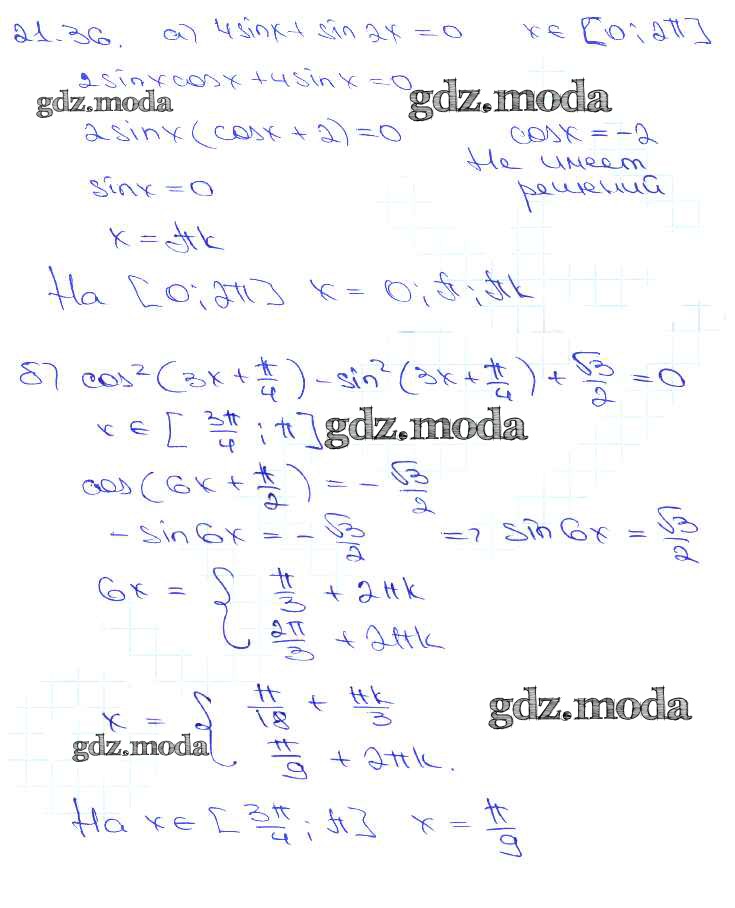 21.36. а) 4sinx + sin 2x = 0 x ∈ [0; 2π]
2sinxcosx + 4sinx = 0
gdz.moda gdz.moda
2sinx(cosx + 2) = 0 cosx = -2
Не имеет
sinx = 0 решений
x = πk
На [0; 2π] x = 0; π; πk
б) cos²(3x + π/4) - sin²(3x + π/4) + √3/2 = 0
x ∈ [3π/4; π] gdz.moda
cos(6x + π/2) = -√3/2
-sin6x = -√3/2 => sin6x = √3/2
6x = { π/3 + 2πk
2π/3 + 2πk
x = { π/18 + πk/3 gdz.moda
gdz.moda π/9 + 2πk.
На x ∈ [3π/4; π] x = π/9